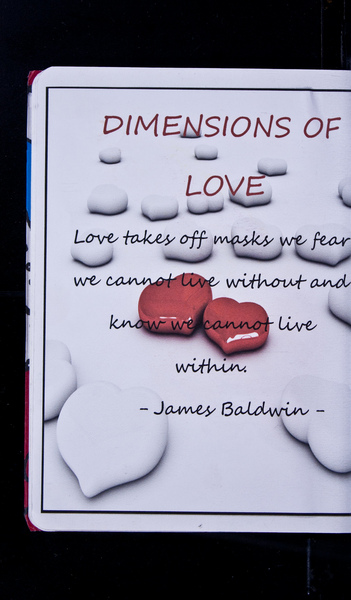 DIMENSIONS OF
LOVE
Love takes off masks we fear
we cannot live without and
know we cannot live
within.
- James Baldwin -